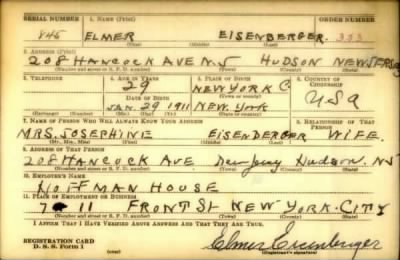 SERIAL NUMBER 1. NAME (Print) ORDER NUMBER
845 ELMER EISENBERGER
2. ADDRESS (Print)
208 HANCOCK AVE N.J HUDSON NEW JERSEY
(Number and street or R. F. D. number) (Town) (County) (State)
3. TELEPHONE 4. AGE IN YEARS 5. PLACE OF BIRTH 6. COUNTRY OF CITIZENSHIP
29 NEW YORK C.
DATE OF BIRTH (Town or county)
JAN. 29 1911 NEW YORK USA
(Exchange) (Number) (Mo.) (Day) (Yr.) (State or country)
7. NAME OF PERSON WHO WILL ALWAYS KNOW YOUR ADDRESS 8. RELATIONSHIP OF THAT PERSON
MRS. JOSEPHINE EISENBERGER WIFE
(Mr., Mrs., Miss) (First) (Middle) (Last)
9. ADDRESS OF THAT PERSON
208 HANCOCK AVE New Jersey Hudson. NJ
(Number and street or R. F. D. number) (Town) (County) (State)
10. EMPLOYER'S NAME
HOFFMAN HOUSE
11. PLACE OF EMPLOYMENT OR BUSINESS
7-11 FRONT St NEW YORK. CITY
(Number and street or R. F. D. number) (Town) (County) (State)
I AFFIRM THAT I HAVE VERIFIED ABOVE ANSWERS AND THAT THEY ARE TRUE.
REGISTRATION CARD
D. S. S. Form 1
Elmer Eisenberger
(Registrant's signature)